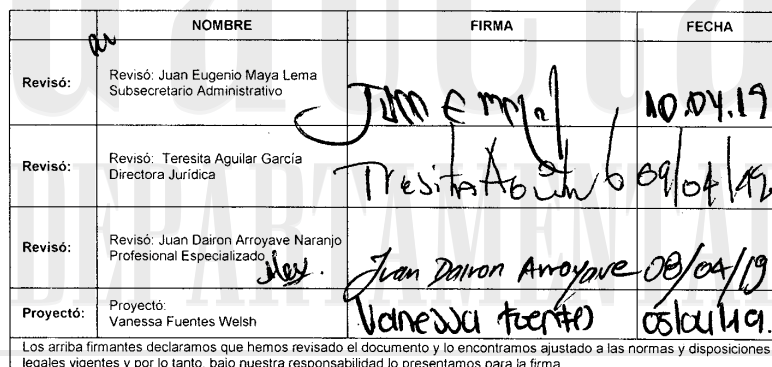 NOMBRE FIRMA FECHA
Revisó: Revisó: Juan Eugenio Maya Lema
Subsecretario Administrativo
10.04.19
Revisó: Revisó: Teresita Aguilar García
Directora Jurídica
Tresita Aguilar G 09/04/19
Revisó: Revisó: Juan Dairon Arroyave Naranjo
Profesional Especializado
Juan Dairon Arroyave 08/04/19
Proyectó: Proyectó:
Vanessa Fuentes Welsh
Vanessa Fuentes 05/04/19.
Los arriba firmantes declaramos que hemos revisado el documento y lo encontramos ajustado a las normas y disposiciones
legales vigentes y por lo tanto, bajo nuestra responsabilidad lo presentamos para la firma
DEPARTAMENTAL